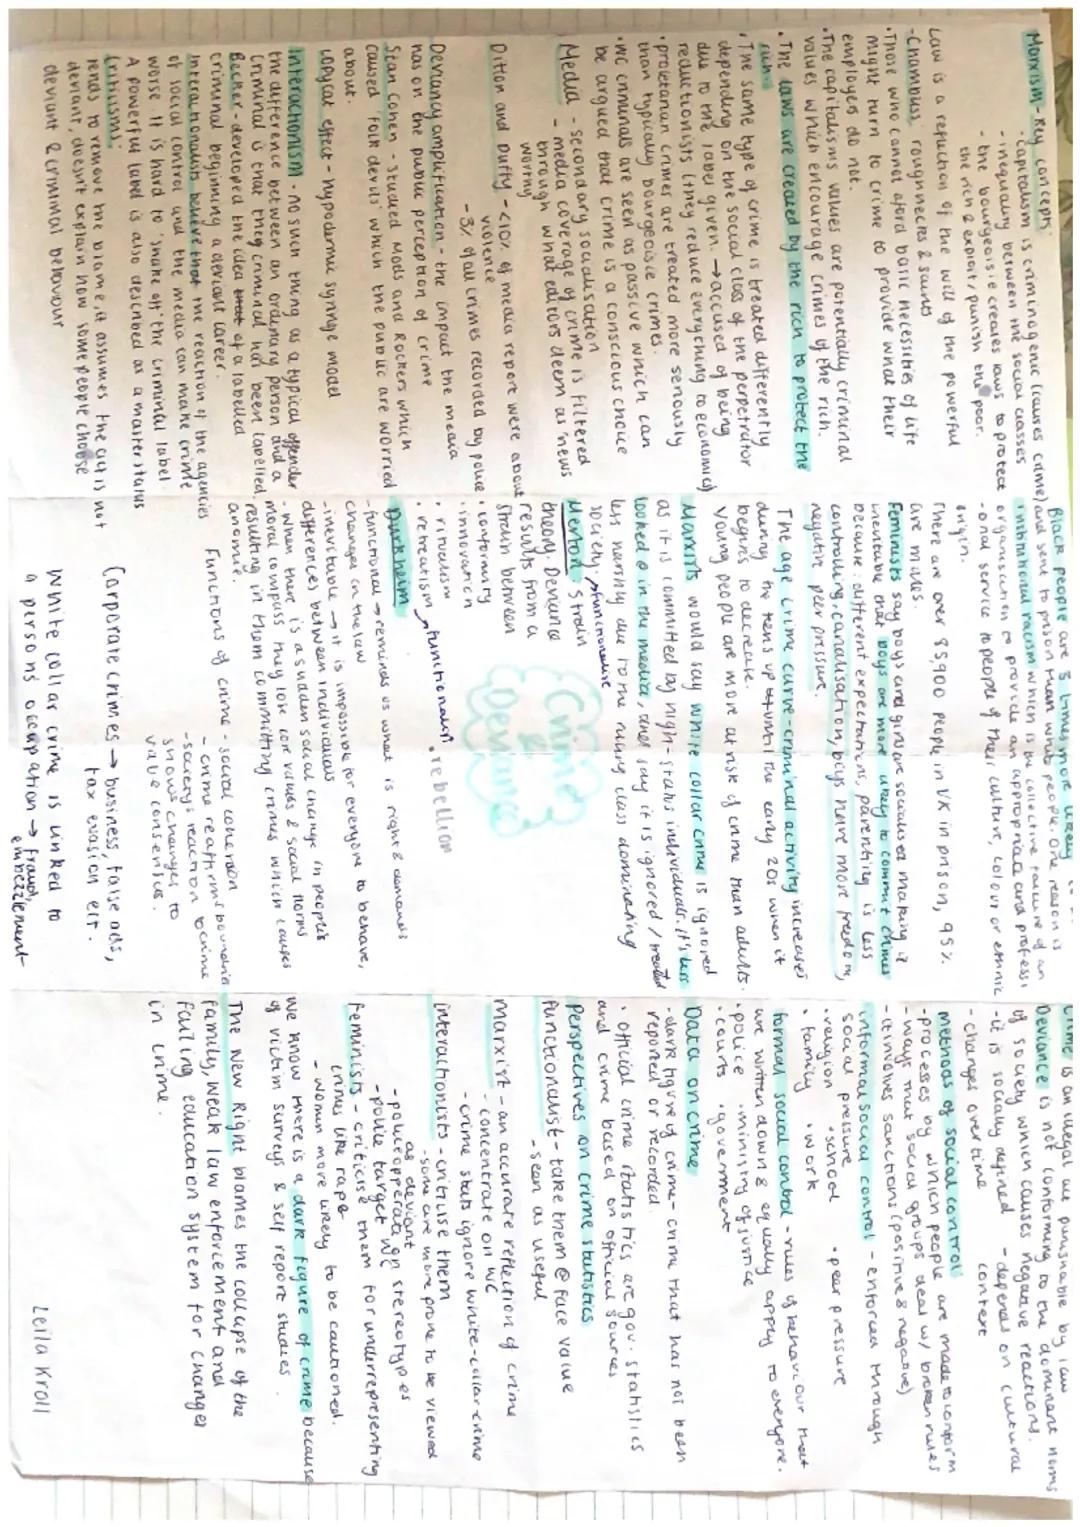 Marxism - key concepts:
- capitalism is criminogenic (causes crime)
- inequality between the social classes
- the bourgeoisie creates laws to protect
the rich & exploit / punish the poor.
Law is a reflection of the will of the powerful
- Chambliss: roughnecks & saints
• Those who cannot afford basic necessities of life
might turn to crime to provide what their
employer do not.
• The capitalisms values are potentially criminal
values which encourage crimes of the rich.
• The laws are created by the rich to protect the
rich.
• The same type of crime is treated differently
depending on the social class of the perpetrator
due to the label given. → accused of being
reductionists (they reduce everything to economics)
• proletarian crimes are treated more seriously
than typically bourgeoisie crimes.
• WC criminals are seen as passive which can
be argued that crime is a conscious choice
Media - secondary socialisation
- media coverage of crime is filtered
through what editors deem as 'news
worthy'
Ditton and Duffy - <10% of media report were about
violence
- 3% of all crimes recorded by police
Deviancy amplification - the impact the media
has on the public perception of crime
Stan Cohen - studied Mods and Rockers which
caused 'folk devils' which the public are worried
about.
copycat effect - hypodermic syringe model
Interactionism - no such thing as a typical offender
the difference between an ordinary person and a
criminal is that they criminal has been labelled.
Becker - developed the idea of a labelled
criminal beginning a deviant career.
Interactionalists believe that the reaction of the agencies
of social control and the media can make crime
worse. It is hard to 'shake off' the criminal label
A powerful label is also described as a master status
Critisisms:
tends to remove the blame, it assumes the cut is not
deviant, doesn't explain how some people choose
deviant & criminal behaviour
Black people are 5 times more likely
and sent to prison than white people. one reason is
institutional racism which is the collective failure of an
organisation to provide an appropriate and professi
-onal service to people of their culture, colour or ethnic
origin.
There are over 85,900 people in UK in prison, 95%
are males.
Feminists say boys and girls are socialised making it
inevitable that boys are more likely to commit crimes
because: different expectations, parenting is less
controlling, canalisation, boys have more freedom,
negative peer pressure.
The age crime curve - criminal activity increases
during the teens up until the early 20s when it
begins to decrease.
Young people are more at risk of crime than adults.
Marxists would say white collar crime is ignored
looked @ in the media, and say it is ignored / treated
as it is committed by high-status individuals. it's less
less harshly due to the ruling class dominating
society.
Functionalist
Merton: Strain
theory. Deviance
results from a
strain between
• conformity
• innovation
• ritualism
• retreatism
• rebellion
Crime & Deviance
Durkheim → functionalist
- functional → reminds us what is right & demands
changes in the law
- inevitable → it is impossible for everyone to behave,
differences between individuals
- When there is a sudden social change in people's
moral compass they lose our values & social norms
resulting in them committing crimes which causes
anomie.
Functions of crime - social cohersion
- crime reaffirms boundaries
- society's reaction to crime
shows changes to
value consensus.
Corporate crimes → business, false ads,
tax evasion etc.
White collar crime is linked to
a person's occupation → fraud,
embezzlement
Crime is an illegal act punishable by law
Deviance is not conforming to the dominant norms
of society which causes negative reactions.
- it is socially defined - depends on cultural
- changes over time context
methods of social control
- processes by which people are made to conform
- ways that social groups deal w/ broken rules
- it involves sanctions (positive & negative)
informal social control - enforced through
social pressure
• religion • school • peer pressure
• family • work
formal social control - rules of behaviour that
are written down & equally apply to everyone.
• police • ministry of justice
• courts • government
Data on crime
- dark figure of crime - crime that has not been
reported or recorded.
• official crime statistics are gov. statistics
and crime based on official sources.
Perspectives on crime statistics
Functionalist - take them @ face value
- seen as useful
Marxist - an accurate reflection of crime
- concentrate on WC
- crime stats ignore white-collar crime
interactionists - critisise them
- some are more prone to be viewed
as deviant
- police operate on stereotypes
- police target WC
Feminists - criticise them for underrepresenting
crimes like rape
- women more likely to be cautioned.
We know there is a dark figure of crime because
of victim surveys & self report studies.
The New Right blames the collapse of the
family, weak law enforcement and
failing education system for changes
in crime.
Leila Kroll